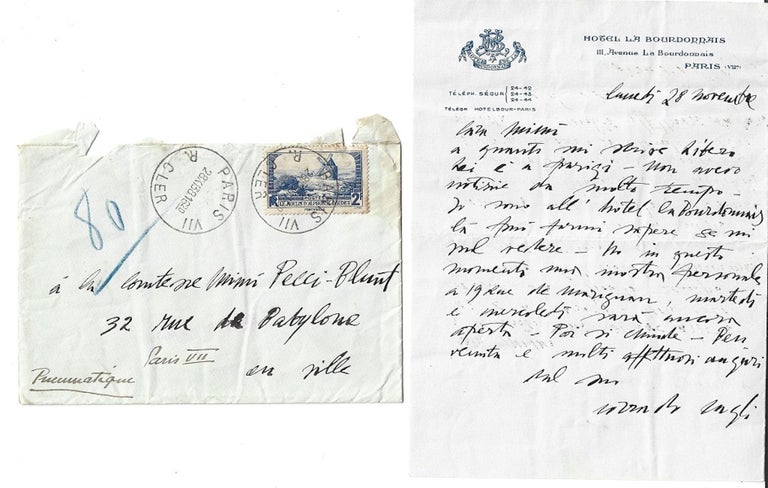 80
PARIS VII
R. CLER
PARIS VII
R. CLER
LE MOULIN D'ALPHONSE DAUDET
2F
à la comtesse Mimì Pecci-Blunt
32 rue de Babylone
Paris VII
en ville
Pneumatique
HOTEL LA BOURDONNAIS
111, Avenue La Bourdonnais
PARIS (VIIe)
TÉLÉPH. SÉGUR
24-42
24-43
24-44
TÉLÉGR. HOTELBOUR-PARIS
lunedi 28 novembre
Cara Mimì
a quanto mi scrive Libero
lei è a parigi. Non avevo
notizie da molto tempo.
Io sono all'hotel la Bourdonnais
là può farmi sapere se mi
vuol vedere - Ho in questo
momento una mostra personale
a 19 Rue de Marignan, martedì
e mercoledì sarà ancora
aperta - Poi si chiude - Ben
venuta e molti affettuosi auguri
dal suo
corrado cagli